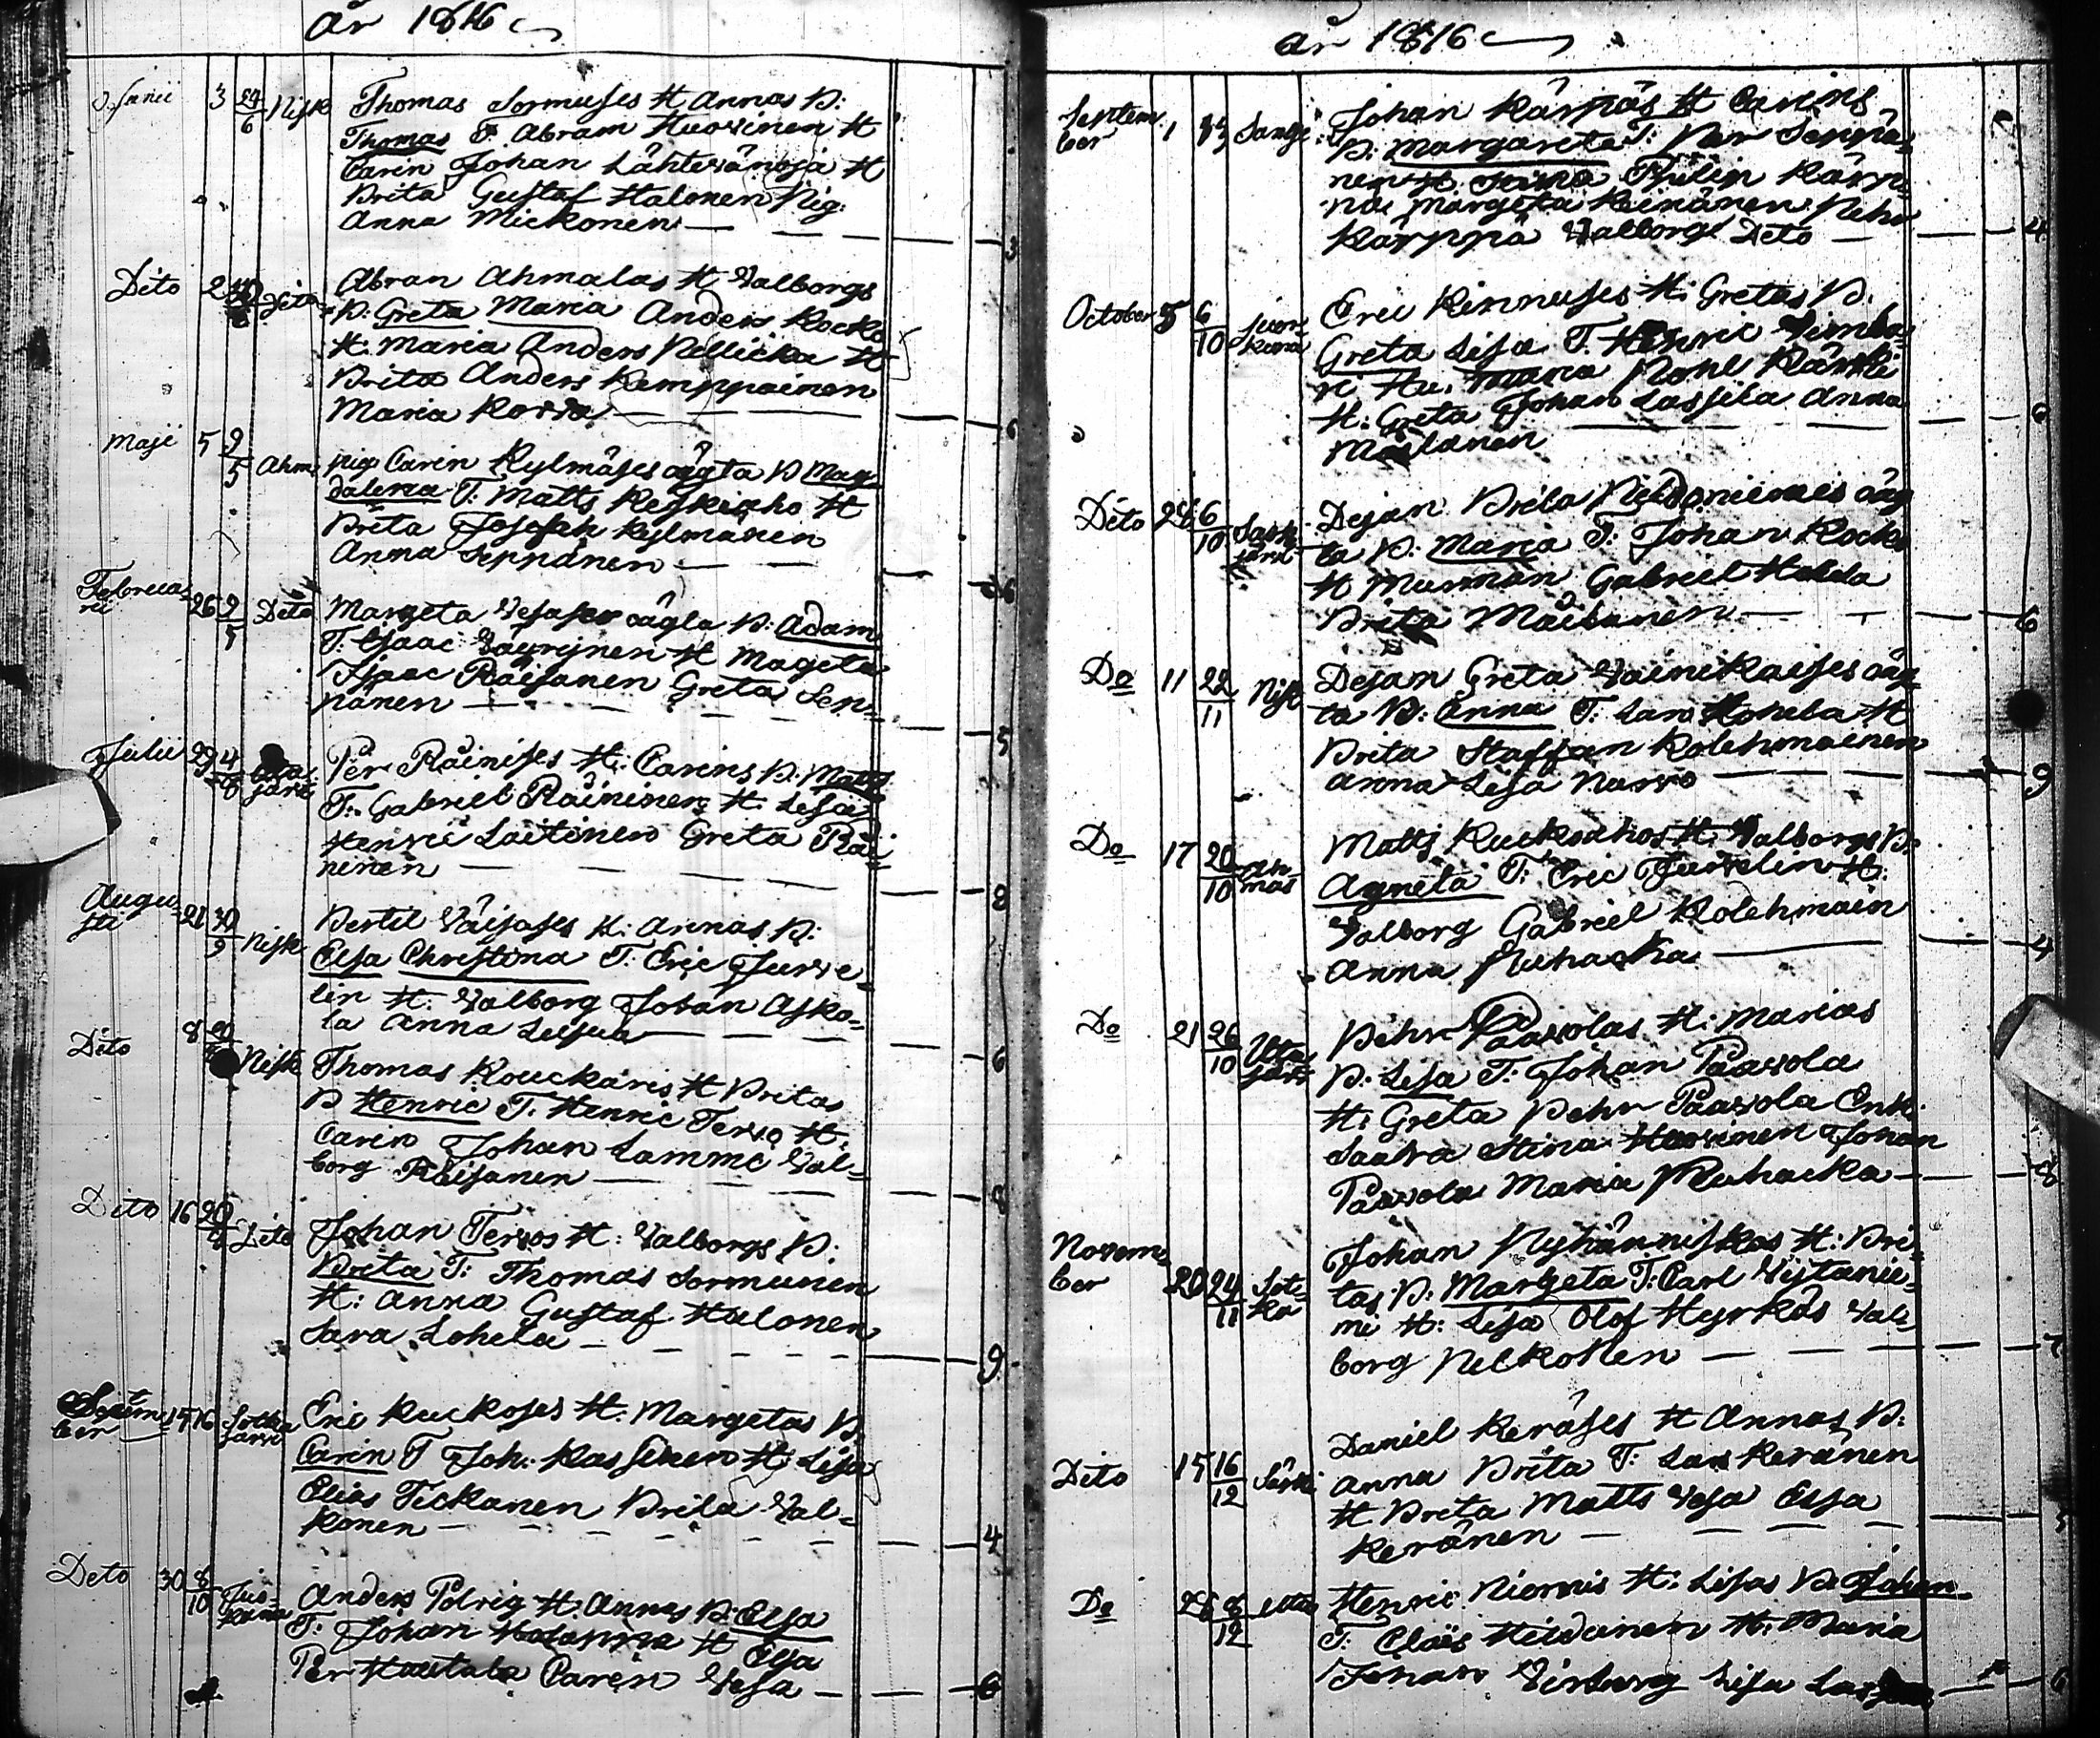 år 1816
Junii 3 24/6 Nisk Thomas Sormuses H Annas B:
Thomas T Abram Huovinen H
Carin Johan Lähtevänoja H
Brita Gustaf Halonen Pig:
Anna Mickonen — 3
Dito 2 Dito Abran Ahmalas H Valborgs
B: Greta Maria Anders Kocko
H: Maria Anders Pellicka H
Brita Anders Kemppainen
Maria Korva — 6
Maji 5 9/5 Ahm pig: Carin Kylmäses oägta B Mag-
dalena T: Matts Keskiaho H
Brita Joseph Kylmänen
Anna Seppänen — 6
Februa-
rii 26 9/5 Dito Margeta Vesases oägta B: Adam
T: Isaac Väyrynen H Mageta
Isaac Räisanen Greta Sep-
pänen — 5
Julii 29 4/8 Utajärvi Per Räinises H: Carins B: Matts
T: Gabriel Räininen H: Lisa
Henric Laitinen Greta Räi-
ninen — 8
Augu-
sti 21 30/9 Nisk Bertil Väisases H: Annas B:
Elsa Christina T: Eric Jurve-
lin H: Valborg Johan Asko-
la Anna Leijua — 6
Dito 8 Nisk Thomas Kouckaris H Britas
B Henric T: Henric Tervo H:
Carin Johan Lammi Val-
borg Räisanen — 8
Dito 16 20 Dito Johan Tervos H: Valborgs B:
Brita T: Thomas Sormunen
H: Anna Gustaf Halonen
Sara Lohela — 9
Septem-
ber 15 16 Sotka
järvi Eric Kuckoses H: Margetas B
Carin T Joh: Kassinen H: Lisa
Elias Tickanen Brita Val-
konen — 4
Dito 30 8/10 Juor-
kuna Anders Polvig H: Annas B: Elsa
T: Johan H Elsa
Per Hautala Carin Vesa — 6
år 1816
Septem-
ber 1 Sangi Johan Kärpäs H Carins
B: Margareta T: Per Seppä-
nen H: Stina Philip Kärp-
pä Margeta Keinänen Pehr
Kärppä Valborg Dito — 4
October 5 6/10 Juor-
kuna Eric Kinnuses H: Gretas B:
Greta Lisa T: Henric Simba-
ri Hu: Maria Pohl Kärki
H: Greta Johan Lassila Anna
Moilanen — 6
Dito 26 6/10 Särki
järvi Dejan Brita Pieldoniemis oäg
ta B: Maria T: Johan Kocko
H Murman Gabriel Halda
Brita Moilanen — 6
Do 11 22/11 Nisk Dejan Greta Vainikaises oäg-
ta B: Anna T: Lars Lohela H
Brita Staffan Kolehmainen
Anna Lisa Narvo — 9
Do 17 20/10 Ah-
mas Matts Kuckoahos H: Valborgs B:
Agneta T: Eric Jurvelin H:
Valborg Gabriel Kolehmain
Anna Muhacka — 4
Do 21 26/10 Uta
järvi Pehr Paavolas H: Marias
B: Lisa T: Johan Paavola
H: Greta Pehr Paavola Enk:
Saara Stina Huovinen Johan
Paavola Maria Muhacka — 8
Novem-
ber 20 24/11 Sot-
ka Johan Pyhänniskas H: Bri-
tas B: Margeta T: Carl Vijtanie-
mi H: Lisa Olof Hyrkäs Val-
borg Pelkonen — 7
Dito 15 16/12 Särki Daniel Keräses H Annas B:
Anna Brita T: Lars Keränen
H Brita Matts Vesa Elsa
Keränen — 5
Do 26 8/12 Uta Henric Niemis H: Lisas B: Johan
T: Claës Heidanen H: Maria
Johan Virberg Lisa — 6